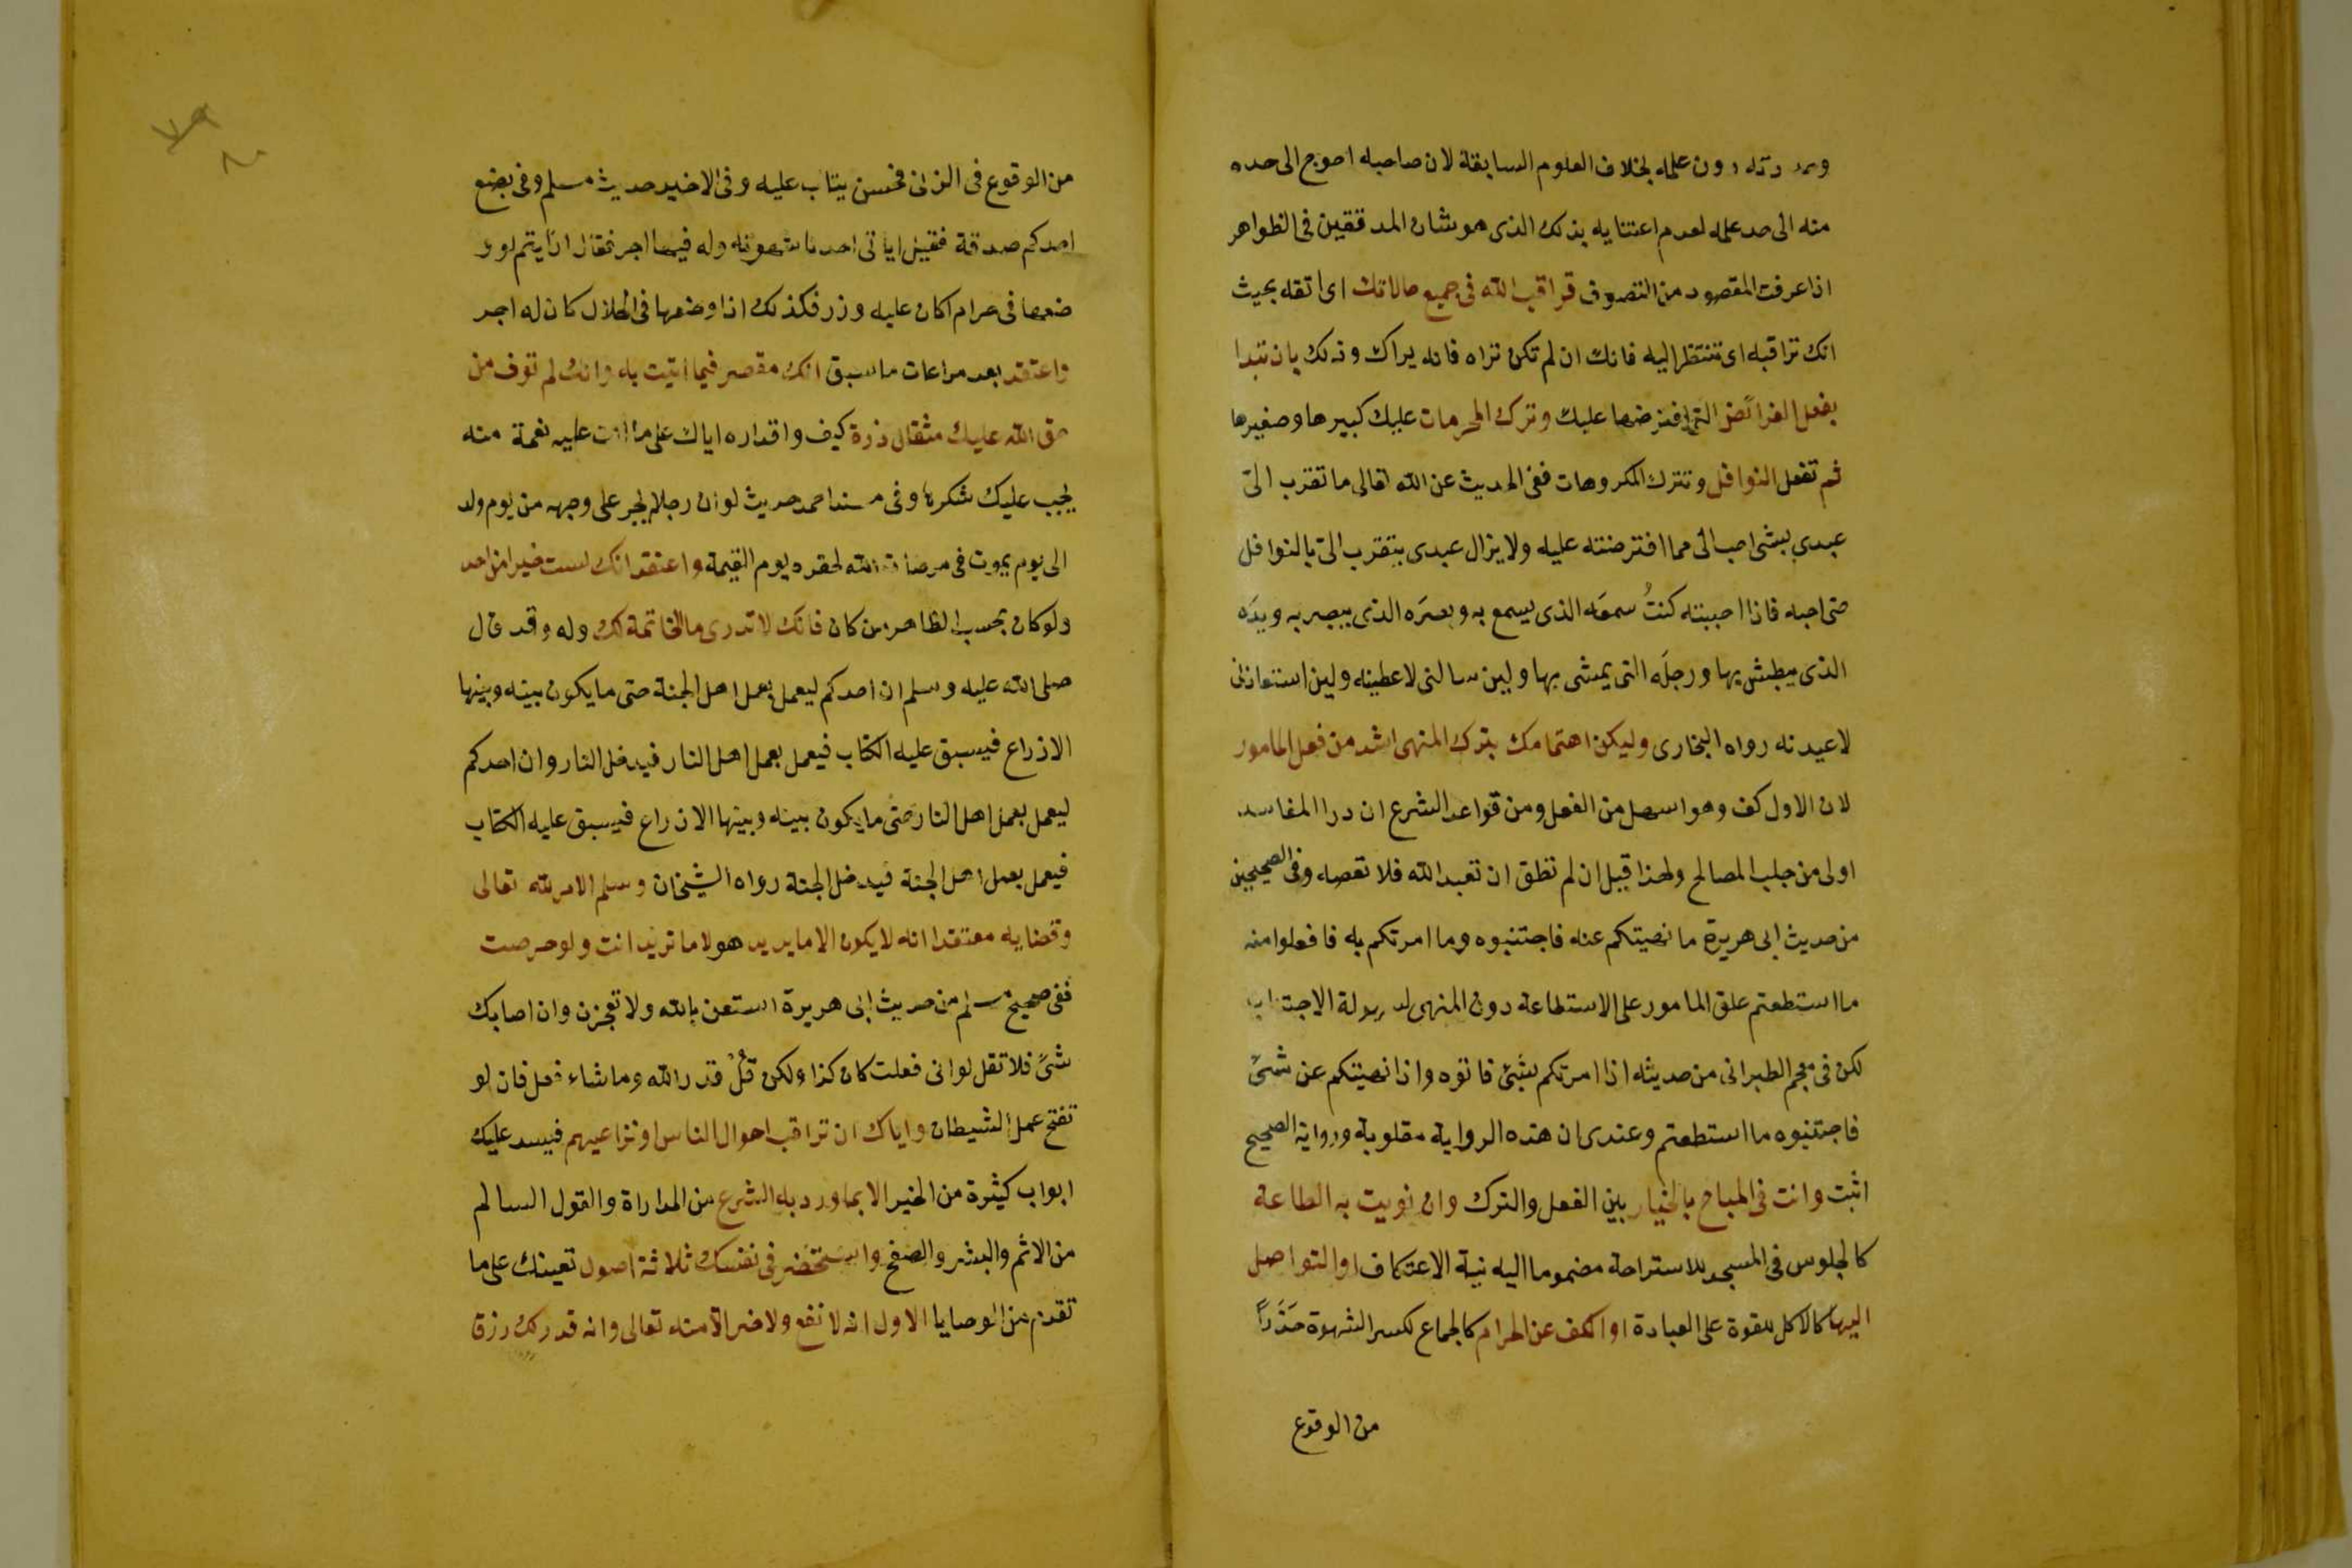 دون علمه بخلاف العلوم السابقة لان صاحبه احوج الى حده
منه الى حد علمه لعدم اعتنايه بذلك الذى هو شان المدققين فى الظواهر
اذا عرفت المقصود من التصوف فراقب الله فى جميع حالاتك اى اتقه بحيث
انك تراقبه اى تنتظر اليه فانك ان لم تكن تراه فانه يراك وذلك بان تبدا
بفعل الفرائض التى افترضها عليك وترك المحرمات عليك كبيرها وصغيرها
ثم تفعل النوافل وتترك المكروهات ففى الحديث عن الله تعالى ما تقرب الىّ
عبدى بشى احب الى مما افترضته عليه ولا يزال عبدى يتقرب الىّ بالنوافل
حتى احبه فاذا احببته كنتُ سمعَه الذى يسمع به وبصرَه الذى يبصر به ويدَه
الذى يبطش بها ورجلَه التى يمشى بها ولين سالنى لاعطينه ولين استعاذنى
لاعيدنه رواه البخارى وليكن اهتمامك بترك المنهى اشد من فعل المامور
لان الاول كف وهو اسهل من الفعل ومن قواعد الشرع ان درا المفاسد
اولى من جلب المصالح ولهذا قيل ان لم تطق ان تعبد الله فلا تعصه وفى الصحيحين
من حديث ابى هريرة ما نهيتكم عنه فاجتنبوه وما امرتكم به فافعلوا منه
ما استطعتم علق المامور على الاستطاعة دون المنهى لسهولة الاجتناب
لكن فى معجم الطبرانى من حديثه اذا امرتكم بشئ فاتوه واذا نهيتكم عن شئ
فاجتنبوه ما استطعتم وعندى ان هذه الرواية مقلوبة ورواية الصحيح
اثبت وانت فى المباح بالخيار بين الفعل والترك وان نويت به الطاعة
كالجلوس فى المسجد للاستراحة مضموما اليه نية الاعتكاف او التواصل
اليها كالاكل للقوة على العبادة او الكف عن الحرام كالجماع لكسر الشهوة حَذَراً
من الوقوع
من الوقوع فى الزنى فحسن يثاب عليه وفى الاخير حديث مسلم وفى بضع
احدكم صدقة فقيل اياتى احدنا شهوته وله فيها اجر فقال ارايتم لو و
ضعها فى حرام اكان عليه وزر فكذلك اذا وضعها فى الحلال كان له اجر
واعتقد بعد مراعات ما سبق انك مقصر فيما اتيت به وانك لم توف من
حق الله عليك مثقال ذرة كيف واقداره اياك على ما اتت عليه نعمة منه
يجب عليك شكرها وفى مسند احمد حديث لو ان رجلا يجر على وجهه من يوم ولد
الى يوم يموت فى مرضات الله لحقره يوم القيمة واعتقد انك لست خيرا من احد
ولو كان بحسب الظاهر من كان فانك لا تدرى ما الخاتمة لك وله وقد قال
صلى الله عليه وسلم ان احدكم ليعمل بعمل اهل الجنة حتى ما يكون بينه وبينها
الا ذراع فيسبق عليه الكتاب فيعمل بعمل اهل النار فيدخل النار وان احدكم
ليعمل بعمل اهل النار حتى ما يكون بينه وبينها الا ذراع فيسبق عليه الكتاب
فيعمل بعمل اهل الجنة فيدخل الجنة رواه الشيخان وسلم الامر لله تعالى
وقضايه معتقدا انه لا يكون الا ما يريد هو لا ما تريد انت ولو حرصت
ففى صحيح مسلم من حديث ابى هريرة استعن بالله ولا تعجزن وان اصابك
شئ فلا تقل لو انى فعلت كان كذا ولكن قُلْ قدر الله وما شاء فعل فان لو
تفتح عمل الشيطان واياك ان تراقب احوال الناس او تراعيهم فيسد عليك
ابواب كثيرة من الخير الا بما ورد به الشرع من المداراة والقول السالم
من الاثم والبشر والصفح واستحضر فى نفسك ثلاثة اصول تعينك على ما
تقدم من الوصايا الاول انه لا نفع ولا ضر الا منه تعالى وانه قدر لك رزق